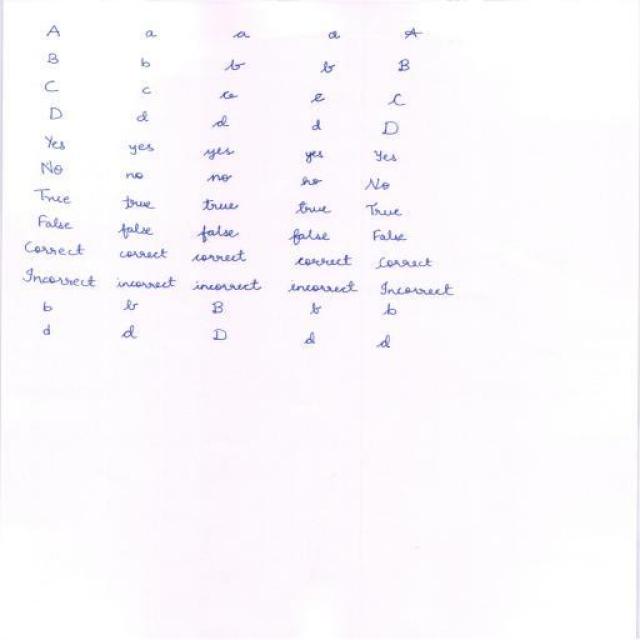 A a a a A
B b b b B
C c c c C
D d d d D
Yes yes yes yes Yes
No no no no No
True true true true True
False false false false False
Correct correct correct correct Correct
Incorrect incorrect incorrect incorrect Incorrect
b b B b b
d d D d d